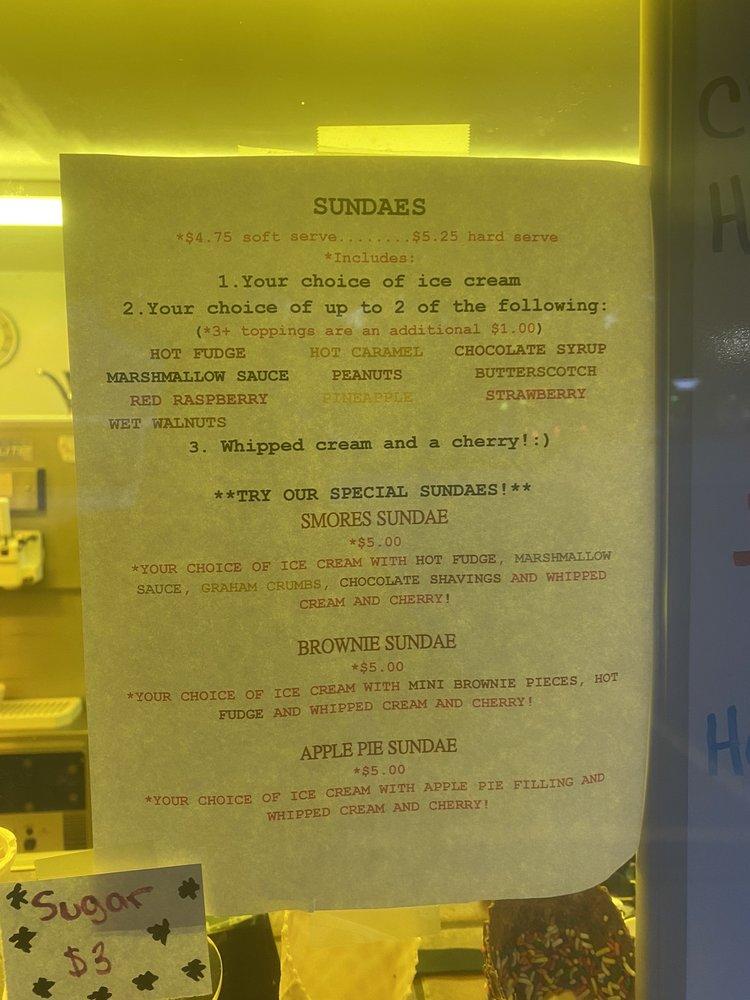 SUNDAES
*$4.75 soft serve........$5.25 hard serve
*Includes:
1.Your choice of ice cream
2.Your choice of up to 2 of the following:
(*3+ toppings are an additional $1.00)
HOT FUDGE HOT CARAMEL CHOCOLATE SYRUP
MARSHMALLOW SAUCE PEANUTS BUTTERSCOTCH
RED RASPBERRY PINEAPPLE STRAWBERRY
WET WALNUTS
3. Whipped cream and a cherry!:)
**TRY OUR SPECIAL SUNDAES!**
SMORES SUNDAE
*$5.00
*YOUR CHOICE OF ICE CREAM WITH HOT FUDGE, MARSHMALLOW
SAUCE, GRAHAM CRUMBS, CHOCOLATE SHAVINGS AND WHIPPED
CREAM AND CHERRY!
BROWNIE SUNDAE
*$5.00
*YOUR CHOICE OF ICE CREAM WITH MINI BROWNIE PIECES, HOT
FUDGE AND WHIPPED CREAM AND CHERRY!
APPLE PIE SUNDAE
*$5.00
*YOUR CHOICE OF ICE CREAM WITH APPLE PIE FILLING AND
WHIPPED CREAM AND CHERRY!
Sugar
$3